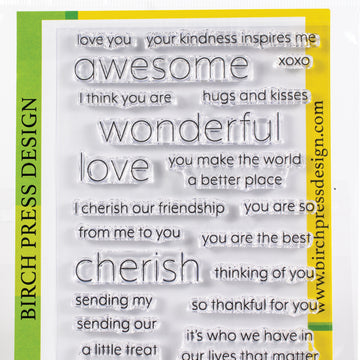 love you your kindness inspires me
awesome xoxo
I think you are hugs and kisses
wonderful
love you make the world
a better place
I cherish our friendship you are so
from me to you you are the best
cherish thinking of you
sending my so thankful for you
sending our it's who we have in
a little treat our lives that matter
BIRCH PRESS DESIGN
www.birchpressdesign.com